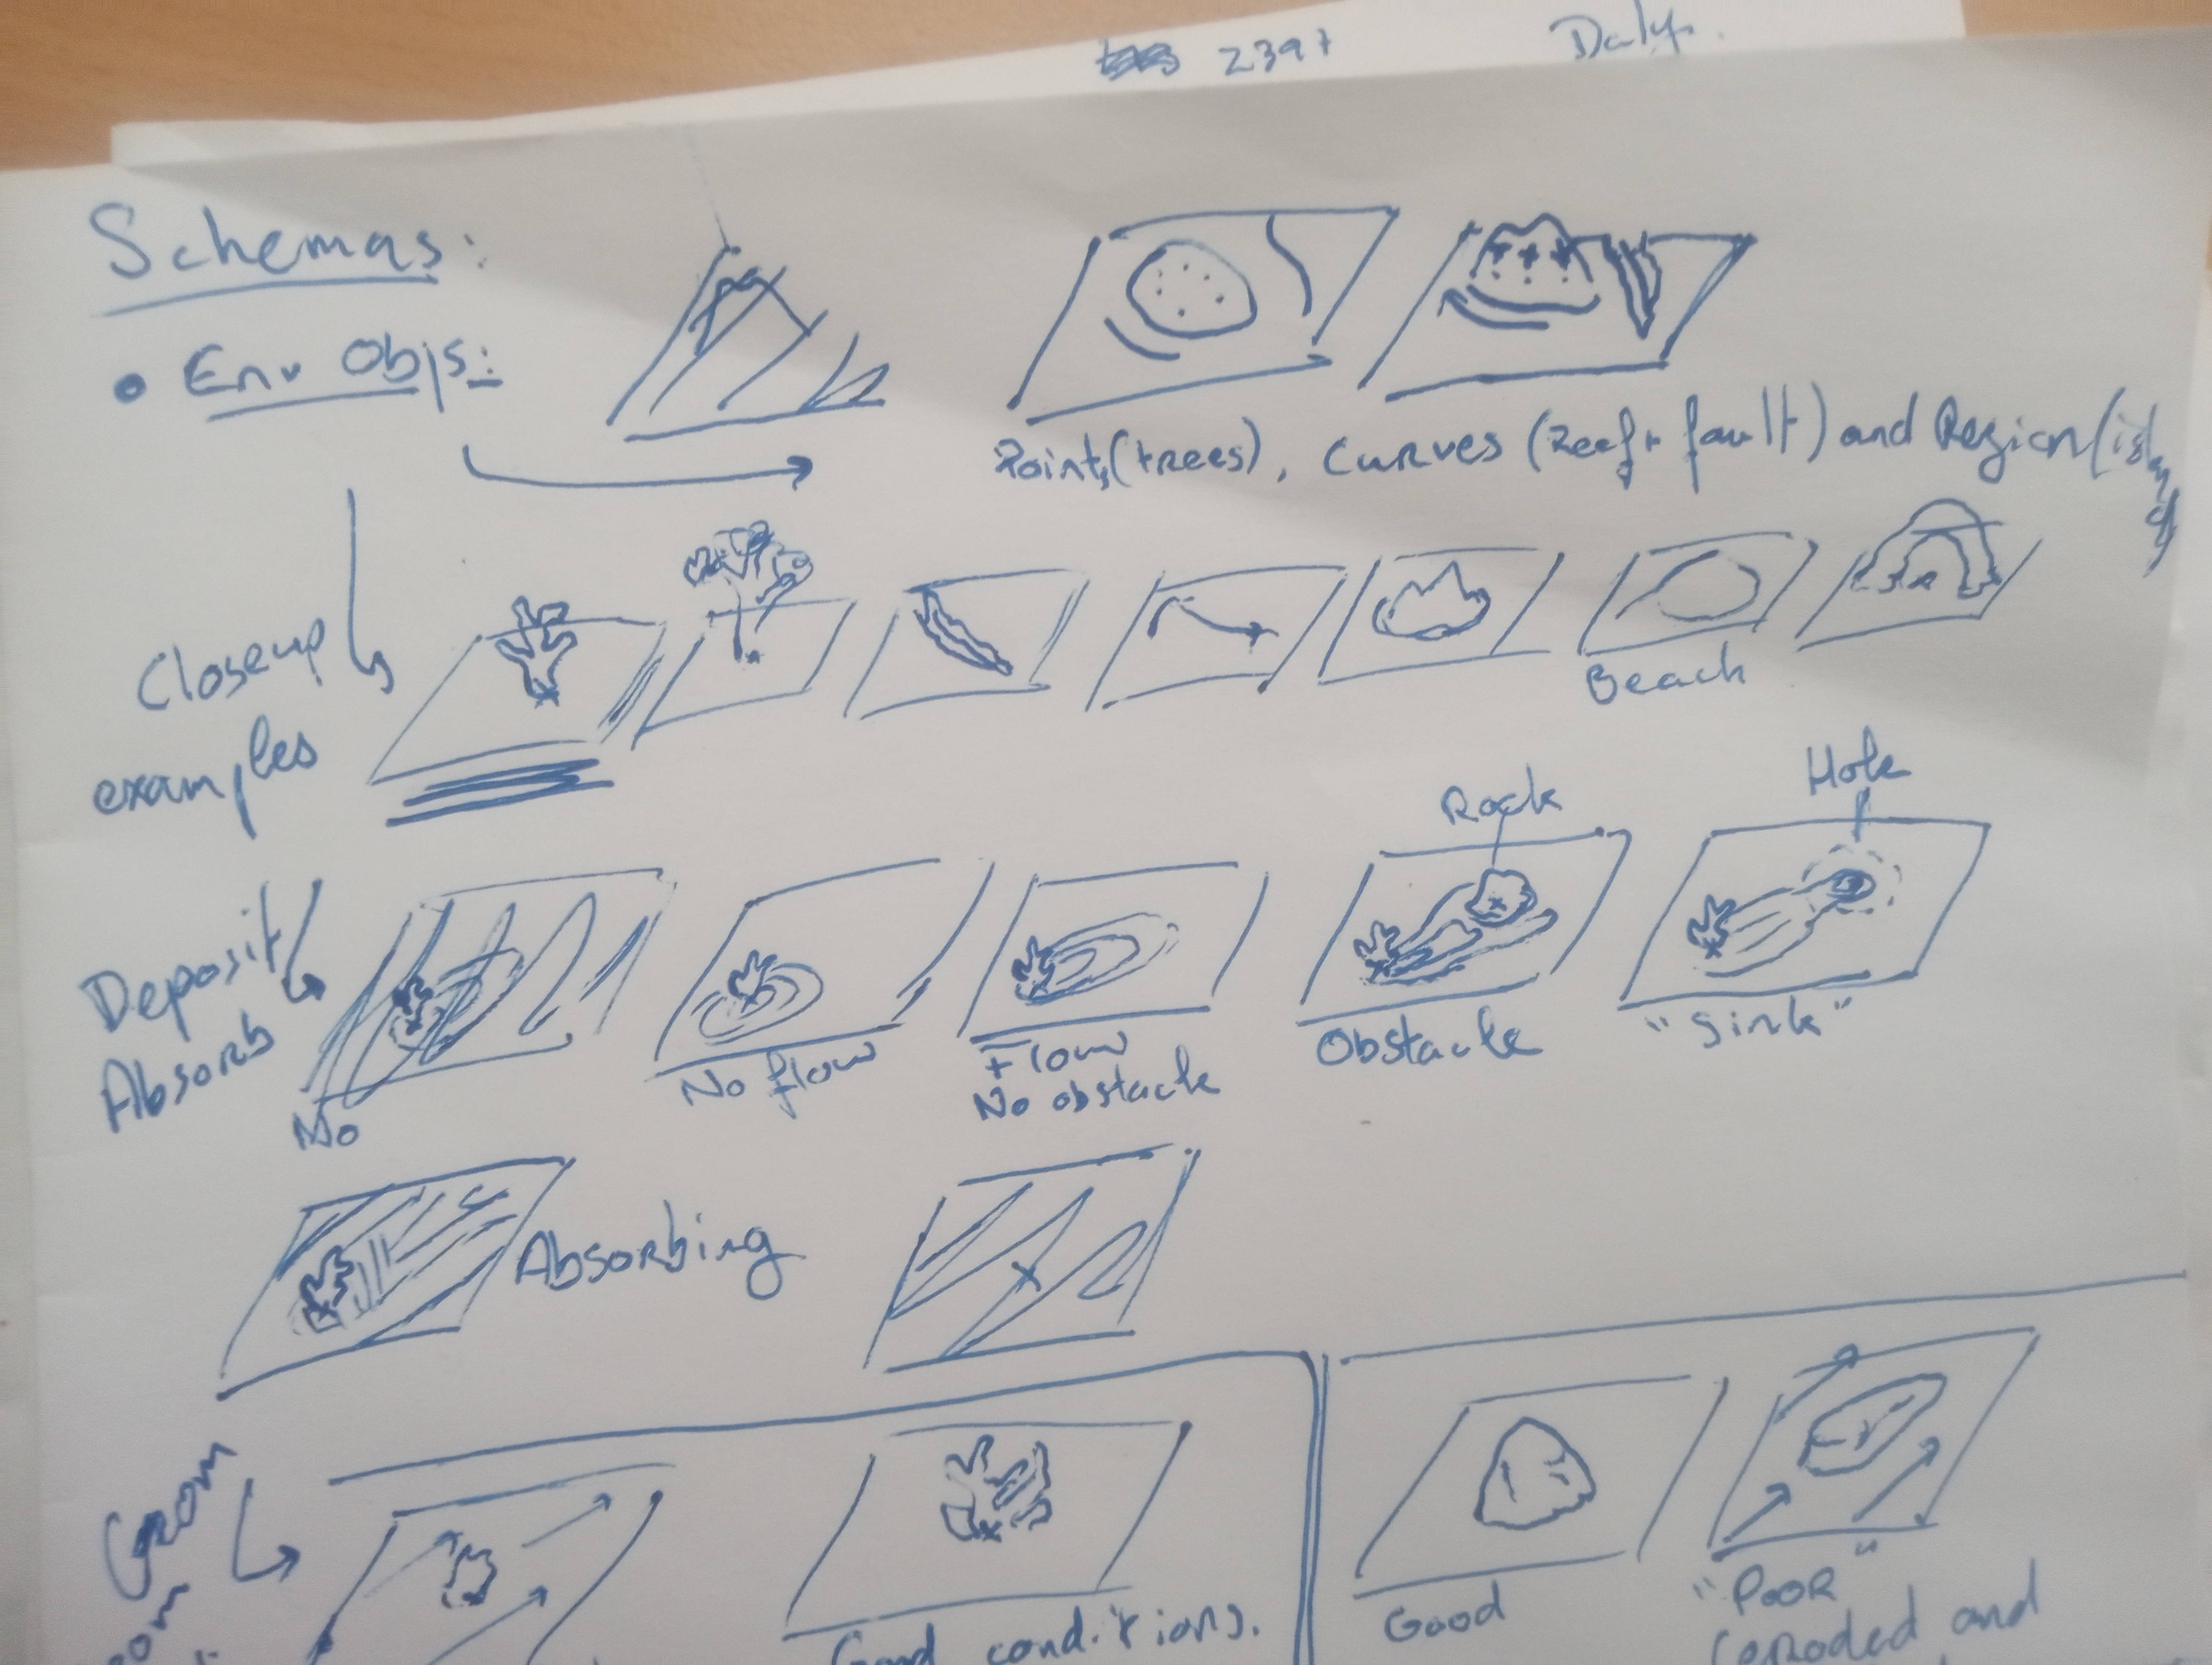 Schemas:
• Env Objs:
Points(trees), Curves (Reef, fault) and Region (isl
Closeup
examples
Beach
Deposit/
Absorb
No flow
Flow
No obstacle
Obstacle
Rock
"Sink"
Hole
Absorbing
Geom
Good conditions.
Good
"Poor"
Eroded and